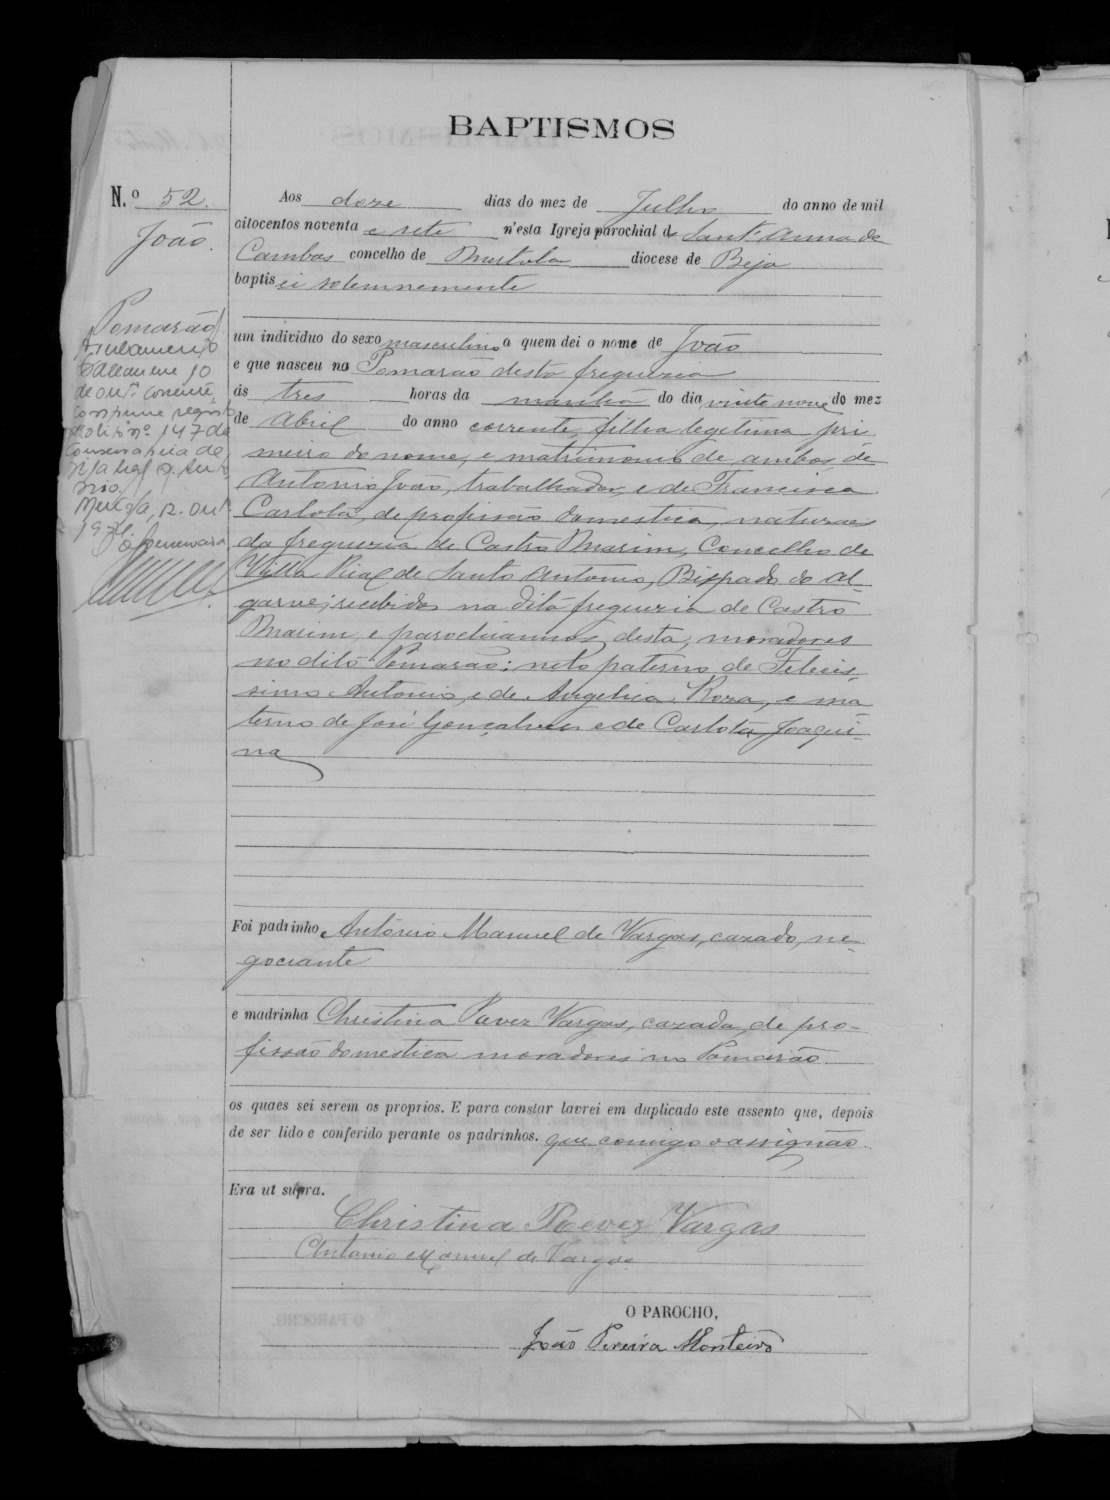 BAPTISMOS
N.º 52.
João.
Aos doze dias do mez de Julho do anno de mil
oitocentos noventa e sete n'esta Igreja parochial de Sant'Anna de
Cambas concelho de Mertola diocese de Beja
baptisei solemnemente
um individuo do sexo masculino a quem dei o nome de João
e que nasceu no Pomarão desta freguezia
ás tres horas da manhã do dia vinte nove do mez
de Abril do anno corrente, filho legitimo pri-
meiro do nome, e matrimonio de ambos de
Antonio João, trabalhador, e de Francisca
Carlota, de profissão domestica, naturaes
da freguezia de Castro Marim, Concelho de
Villa Rial de Santo Antonio, Bispado do Al-
garve; recebidos na dita freguezia de Castro
Marim, e parochiannos desta, moradores
no dito Pomarão; neto paterno de Felicis-
simo Antonio, e de Angelica Roza, e ma-
terno de José Gonçalves e de Carlota Joaqui-
na
Foi padrinho, António Manuel de Vargas, cazado, ne-
gociante
e madrinha Christina Pavez Vargas, cazada, de pro-
fissão domestica moradores no Pomarão
os quaes sei serem os proprios. E para constar lavrei em duplicado este assento que, depois
de ser lido e conferido perante os padrinhos. que comigo o assignão.
Era ut supra.
Christina Paevez Vargas
Antonio Manuel de Vargas
O PAROCHO,
João Pereira Monteiro
Pomarão
Falleceu 10
de out.º corrente
registo
nº 147 da
Conservatória de
Mertola, 12. Out